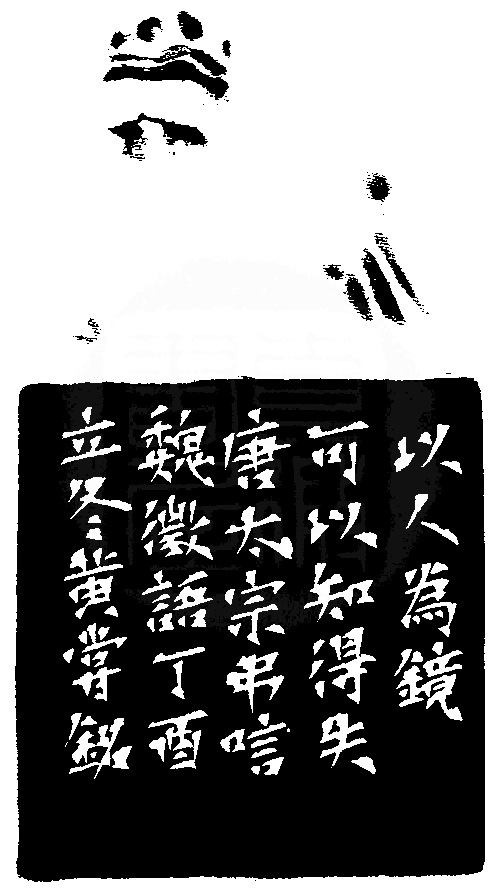 以人為鏡
可以知得失
唐太宗弔唁
魏徵語丁酉
立冬黄嘗銘